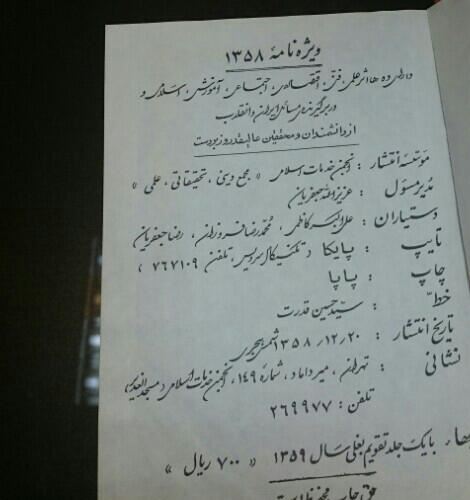 ویژه نامهٔ ۱۳۵۸
دارای ده ها اثر علمی، فنی، اقتصادی، اجتماعی، آموزشی، اسلامی و
دربرگیرنده‌ی مسائل ایران و انقلاب
از دانشمندان و محققین عالیقدر و زبردست
موسسه انتشار : انجمن خدمات اسلامی « مجمع دینی، تحقیقاتی، علمی »
مدیر مسئول : عزیزالله جعفریان
دستیاران : علی اکبر کاظمی، محمدرضا فروزان، رضا جعفریان
تایپ : پایکا « تکنیکال سرویس، تلفن ۷۶۷۱۰۹ »
چاپ : پاپا
خط : سید حسین قدرت
تاریخ انتشار : ۱۳۵۸/۱۲/۲۰ شمسی هجری
نشانی : تهران، میرداماد، شماره ۱۴۹، انجمن خدمات اسلامی، مسجد الغدیر
تلفن : ۲۶۹۹۷۷
بها : با یک جلد تقویم بغلی سال ۱۳۵۹ « ۷۰۰ ریال »
حق چاپ محفوظ است